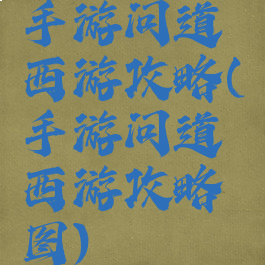 手游问道
西游攻略(
手游问道
西游攻略
图)